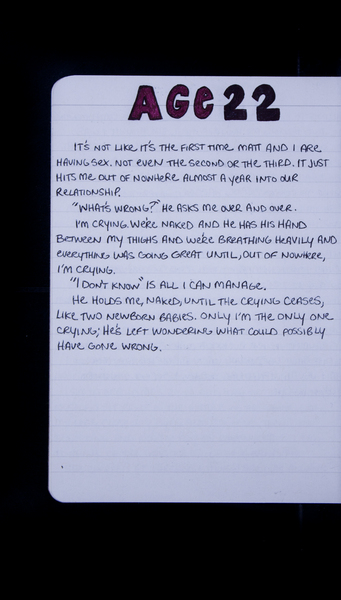 AGE 22
IT'S NOT LIKE IT'S THE FIRST TIME MATT AND I ARE
HAVING SEX. NOT EVEN THE SECOND OR THE THIRD. IT JUST
HITS ME OUT OF NOWHERE ALMOST A YEAR INTO OUR
RELATIONSHIP.
"WHAT'S WRONG?" HE ASKS ME OVER AND OVER.
I'M CRYING. WE'RE NAKED AND HE HAS HIS HAND
BETWEEN MY THIGHS AND WE'RE BREATHING HEAVILY AND
EVERYTHING WAS GOING GREAT UNTIL, OUT OF NOWHERE,
I'M CRYING.
"I DON'T KNOW" IS ALL I CAN MANAGE.
HE HOLDS ME, NAKED, UNTIL THE CRYING CEASES,
LIKE TWO NEWBORN BABIES. ONLY I'M THE ONLY ONE
CRYING; HE'S LEFT WONDERING WHAT COULD POSSIBLY
HAVE GONE WRONG.